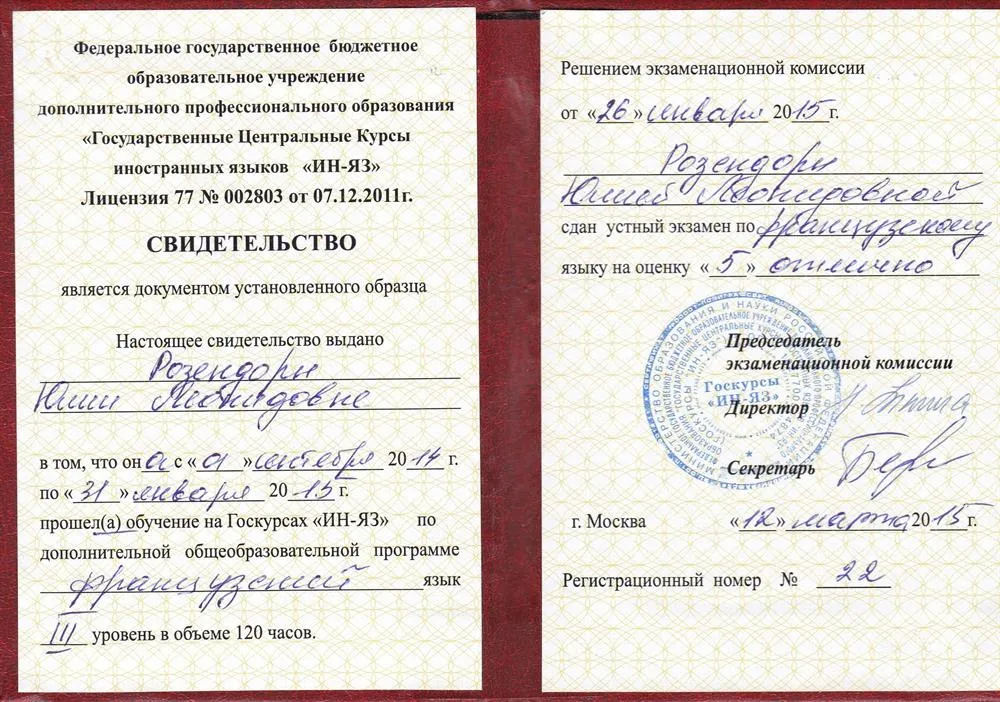 Федеральное государственное бюджетное
образовательное учреждение
дополнительного профессионального образования
«Государственные Центральные Курсы
иностранных языков «ИН-ЯЗ»
Лицензия 77 № 002803 от 07.12.2011г.
СВИДЕТЕЛЬСТВО
является документом установленного образца
Настоящее свидетельство выдано
Розендорн
Юлии Леонидовне
в том, что она с «01» сентября 2014 г.
по «31» января 2015 г.
прошел(а) обучение на Госкурсах «ИН-ЯЗ» по
дополнительной общеобразовательной программе
французский язык
III уровень в объеме 120 часов.
Решением экзаменационной комиссии
от «26» января 2015г.
Розендорн
Юлией Леонидовной
сдан устный экзамен по французскому
языку на оценку «5» отлично
Председатель
экзаменационной комиссии
Госкурсы
«ИН-ЯЗ»
Директор
Секретарь
г. Москва «12» марта 2015г.
Регистрационный номер № 22